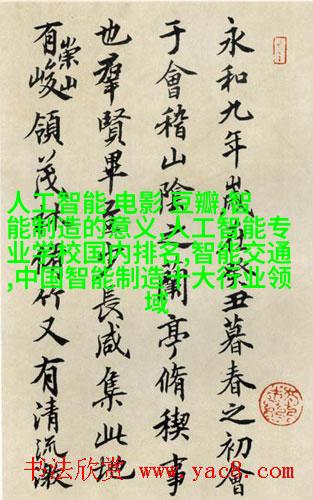 永和九年歲在癸丑暮春之初會
于會稽山陰之蘭亭脩稧事
也羣賢畢至少長咸集此地
有崇山峻領茂林脩竹又有清流激
人工智能,电影 豆瓣,智
能制造的意义,人工智能专
业学校国内排名,智能交通
,中国智能制造十大行业领
域
书法欣赏 www.yac8.com